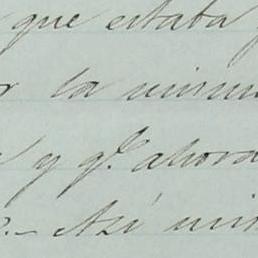 que estaba
la mism
y q.e ahora
Así mis